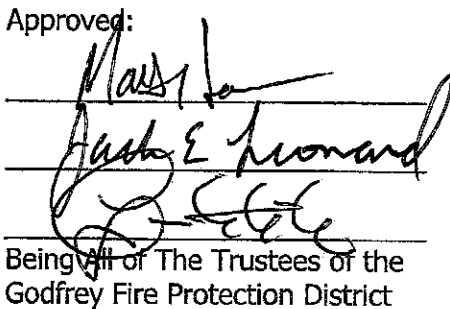 Approved:
Jack E Leonard
Being All of The Trustees of the
Godfrey Fire Protection District